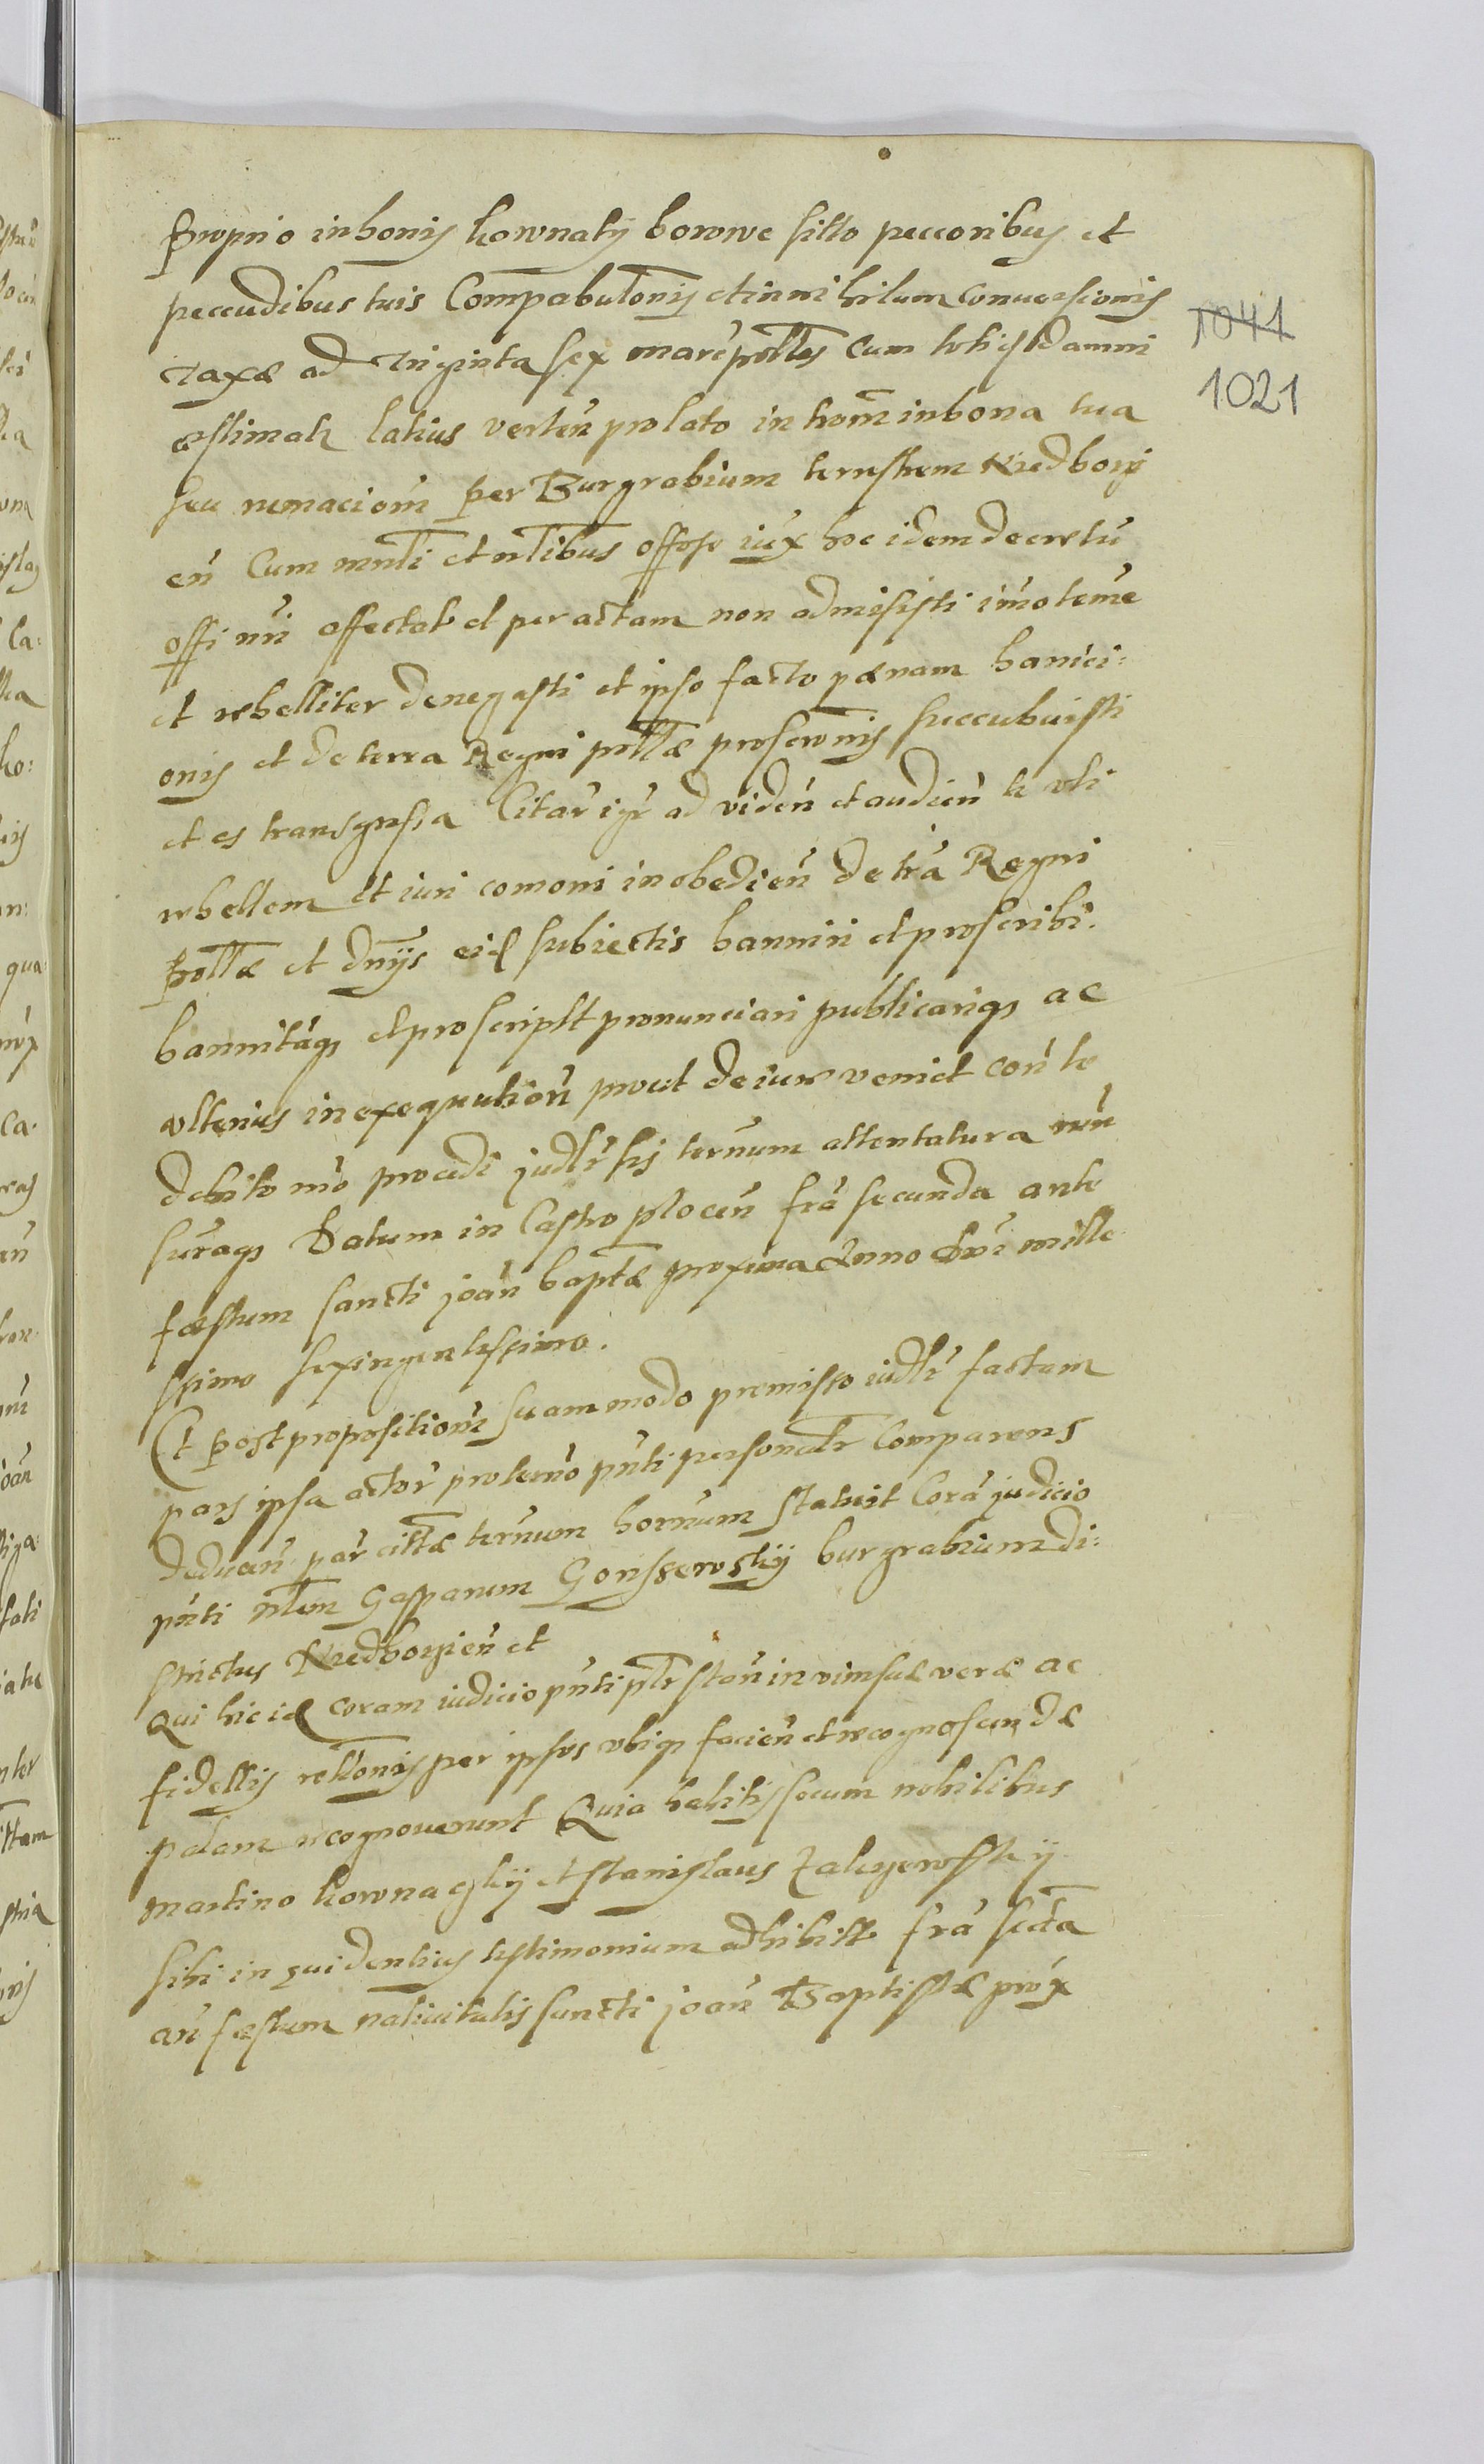 proprio in bonis kownaty borowe sitto peccoribus et
peccudibus tuis Compabutonis et in nihilum conuersionis
Taxæ ad triginta sex marc̃ polles Cum totis damni
æstimatt latius verten̄ prolato in hom̃ in bona tua
seu rumaciom̃ per Burgrabium terrestrem Niedborz
en̄ Cum mnli et nłibus offoso iux hoc idem decretū
offi nr̄i affectat et peractam non admisisti imo teme
et rebelliter denegasti et ipso facto pœnam banici:
onis et de terra Regni polłæ proscronis succubuisti
et es transgressa Citar̄ igr̄ ad viden̄ et audien̄ te uti
rebellem et iuri comoni inobedien̄ de tr̄a Regni
pollæ et dnÿs eid subiectis bannii et proscribi.
bannitāq et proscriptt pronunciari publicariq ac
ulterius in exequution̄ prout de iure veniet con̄ te
debito mō procedi judlr̄ sis terūum attentatura rn̄n
surāq Datum in Castro plocen̄ fr̄a secunda ante
fæstum sancti joān baptæ proxima Anno dn̄i mille
ssimo sexingentessimo.
Et post propositiom̄ suam modo premisso iudlr̄ factam
pars ipsa actor̄ pro termō pn̄ti personałr Comparens
deducen̄ par cittæ terūum horūum statuit Corā judicio
pn̄ti nłem Gasparum Gonssewskÿ burgrabium di:
strictus Niedborzien̄ et
Qui hic id coram iudicio pn̄ti płr stan̄ in vim suæ veræ ac
fidellis reltonis per ipsos ubiq facien̄ et recognoscendæ
palam recognouerunt Quia habitis secum nobilibus
martino kownaczkÿ et stanislaus zalczewskÿ
sibi in euidentius testimonium adhibitt fr̄a secda
an̄ fæstum natiuitatis sancti joān Baptistæ prox
1041
1021